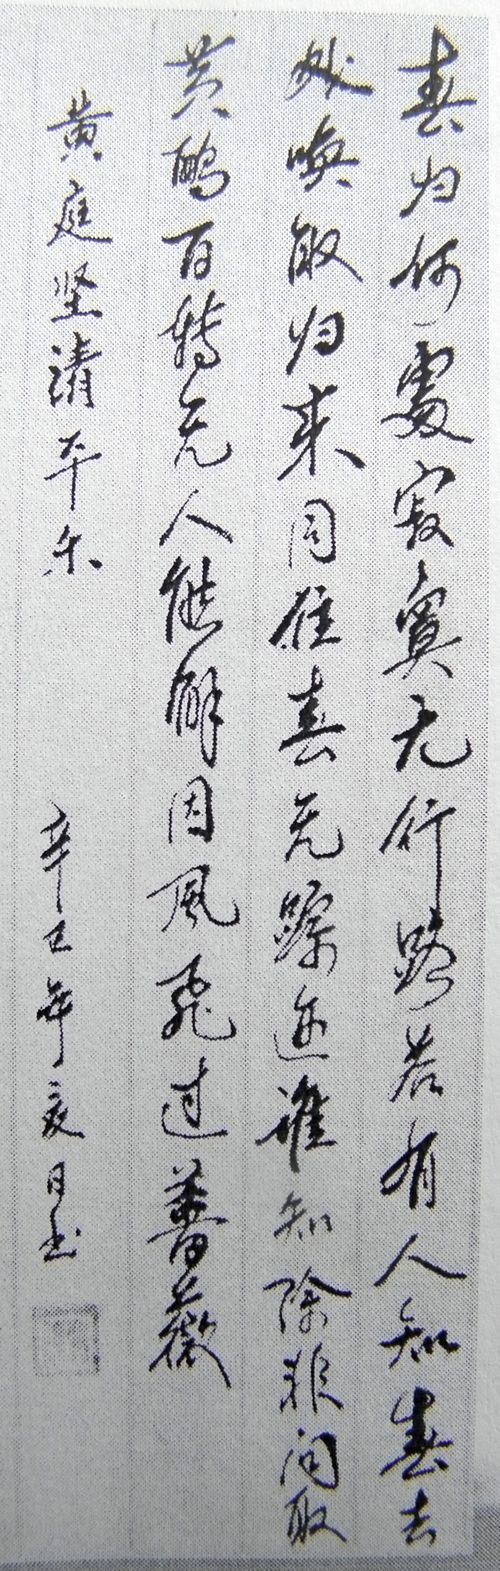 春归何處寂寞无行路若有人知春去
处唤取归来同住春无踪迹谁知除非问取
黄鹂百转无人能解因风飞过蔷薇
黄庭坚清平乐 辛巳年夏日书